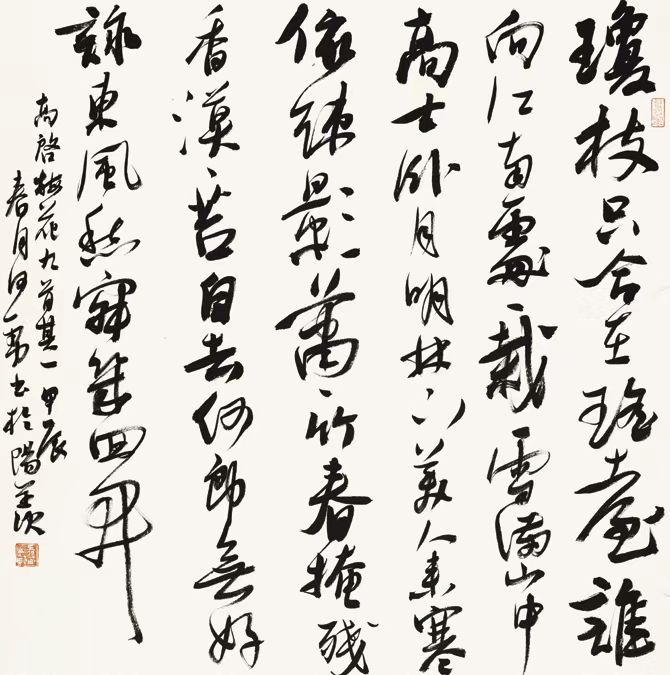 瓊枝只合在瑤臺誰
向江南處〻栽雪滿山中
高士卧月明林下美人來寒
依疎影蕭〻竹春掩殘
香漠〻苔自去何郎無好
詠東風愁寂幾回開
高啓梅花九首其一甲辰
春月書於陽羨